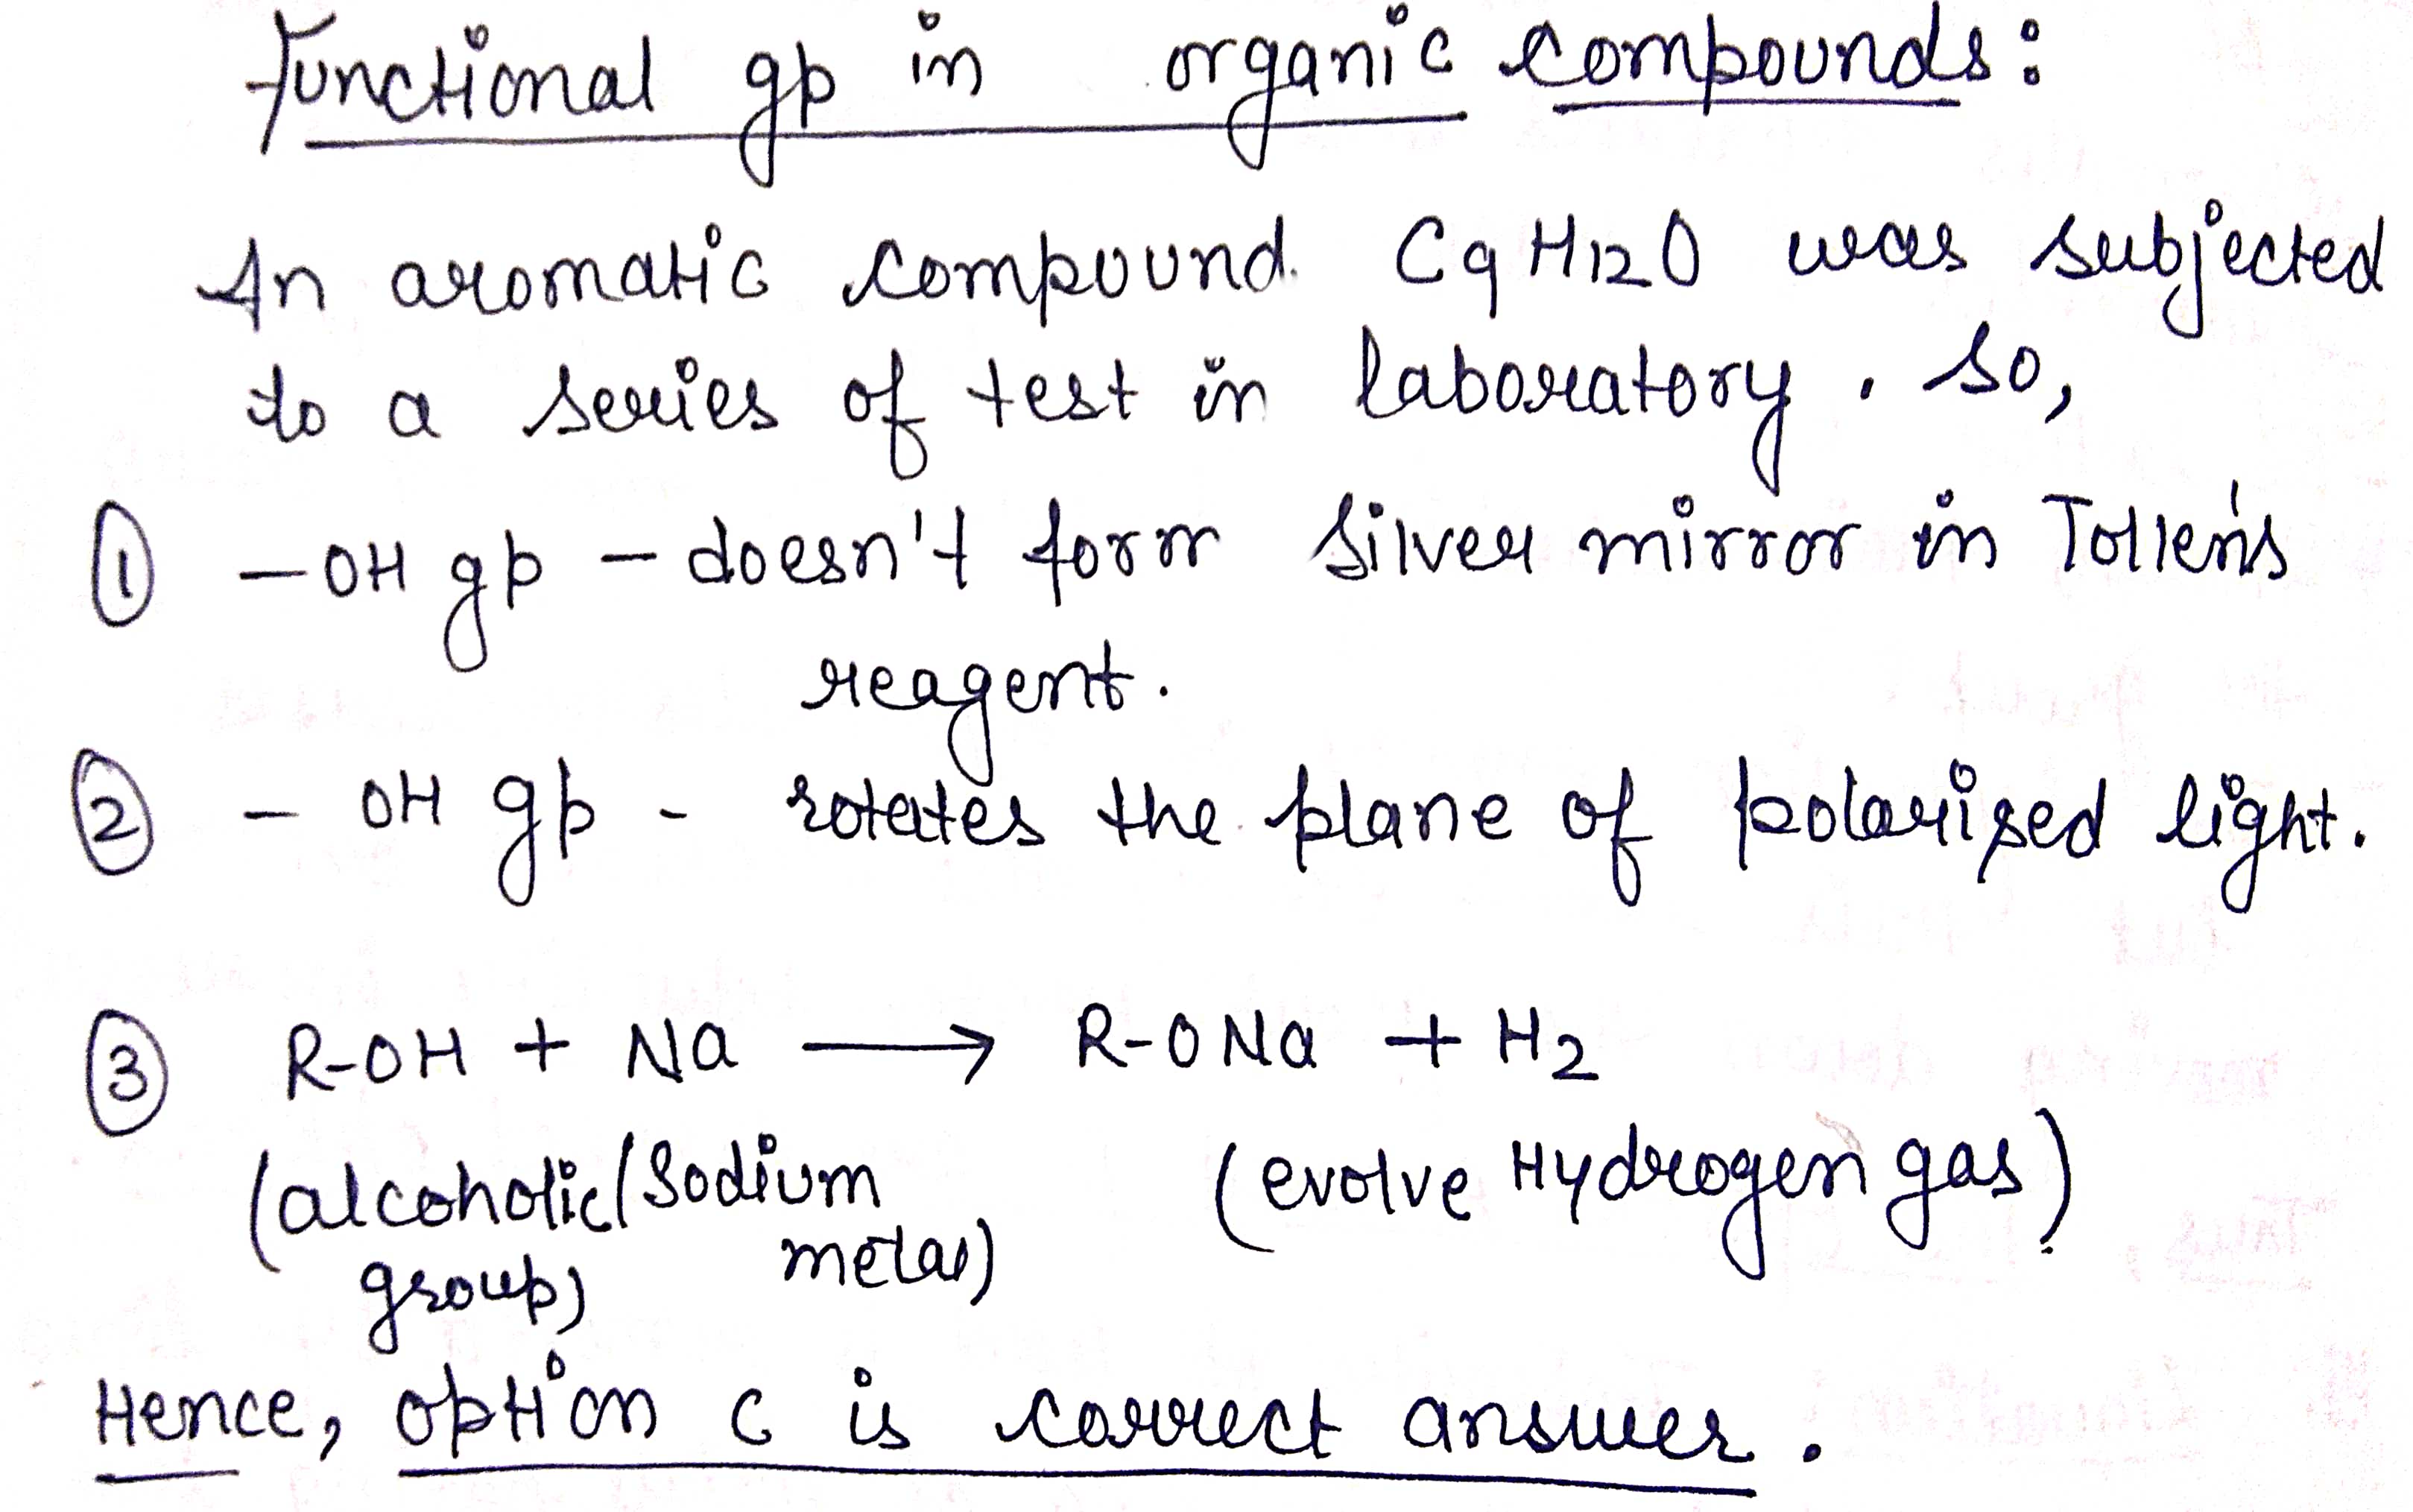 Functional gp in organic compounds:
An aromatic compound C9H12O was subjected
to a series of test in laboratory. So,
① -OH gp - doesn't form silver mirror in Tollen's
reagent.
② - OH gp - rotates the plane of polarized light.
③ R-OH + Na → R-ONa + H2
(alcoholic (Sodium (evolve Hydrogen gas)
group) metal)
Hence, option c is correct answer.